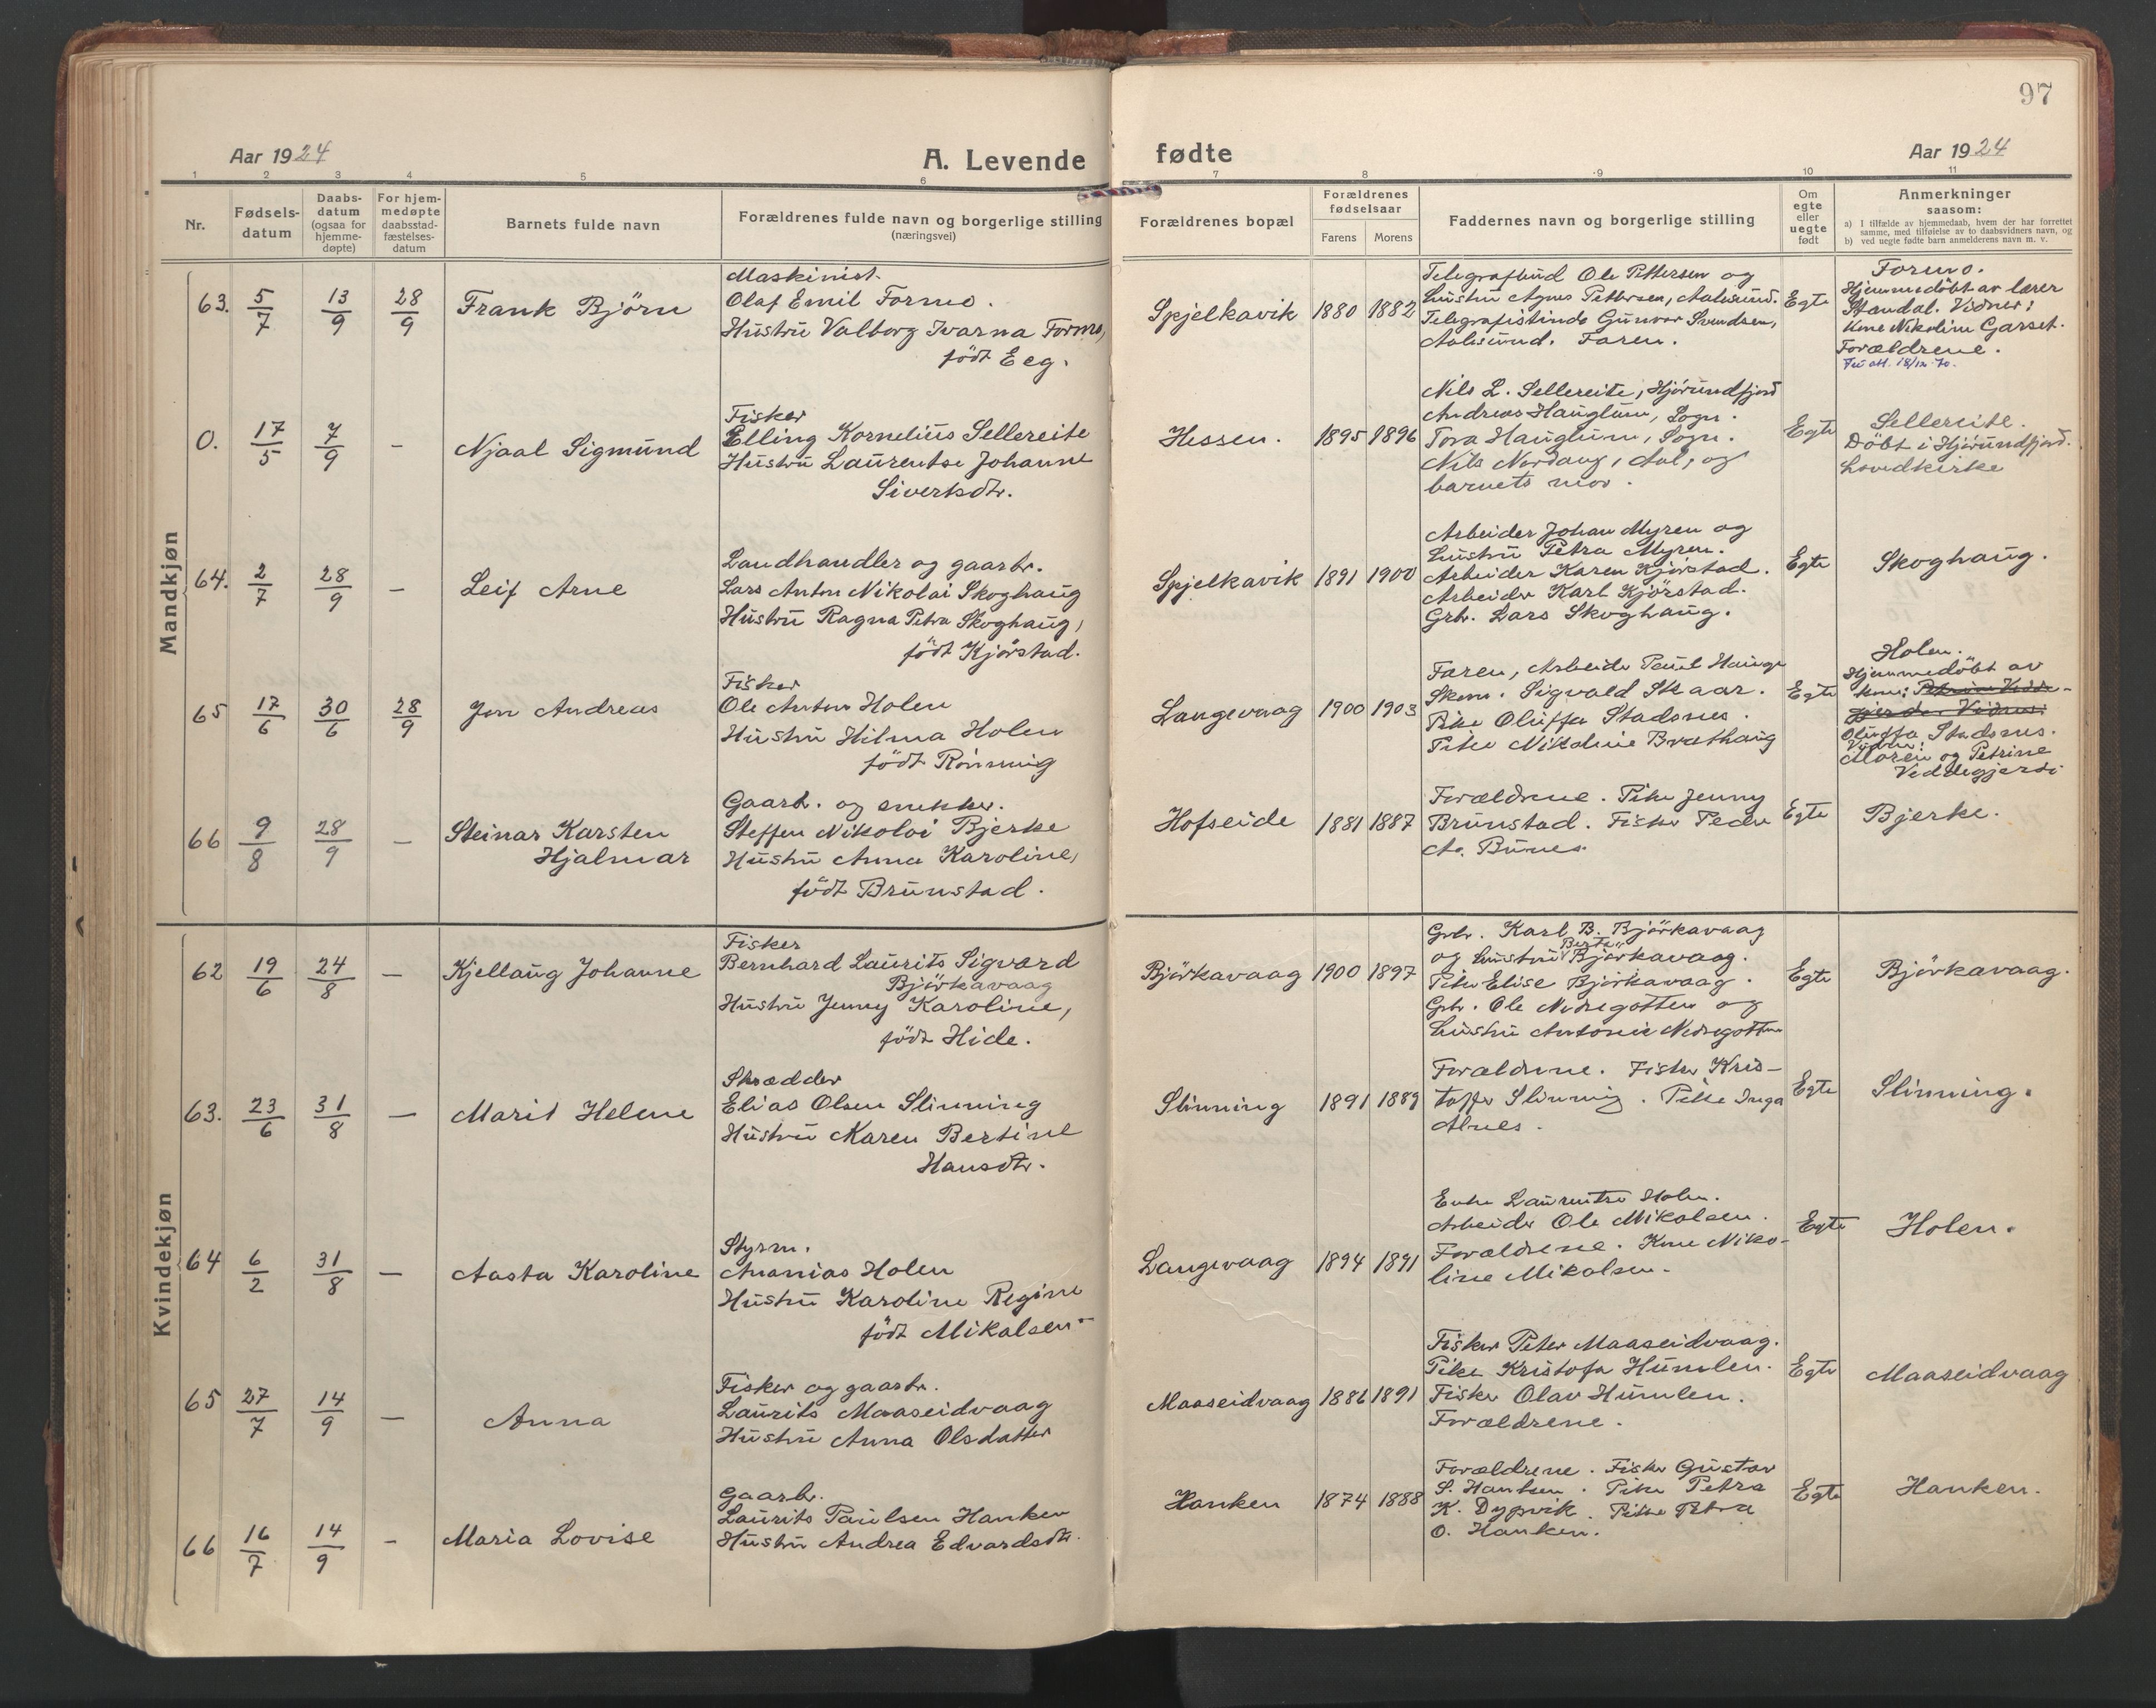 97
Aar 1924
A. Levende
fødte
Aar 1924
1 2 3 4 5 6 7 8 9 10 11
Nr.
Fødsels-
datum
Daabs-
datum
(ogsaa for
hjemme-
døpte)
For hjem-
medøpte
daabsstad-
fæstelses-
datum
Barnets fulde navn
Forældrenes fulde navn og borgerlige stilling
(næringsvei)
Forældrenes bopæl
Forældrenes
fødselsaar
Farens
Morens
Faddernes navn og borgerlige stilling
Om
egte
eller
uegte
født
Anmerkninger
saasom:
a) I tilfælde av hjemmedaab, hvem der har forrettet
samme, med tilføielse av to daabsvidners navn, og
b) ved uegte fødte barn anmelderens navn m. v.
Mandkjøn
63. 5/7 13/9 28/9 Frank Björn
Maskinist.
Olaf Emil Formo.
Hustru Valborg Ivarna Formo,
födt Eeg.
Spjelkavik 1880 1882
Telegrafbud Ole Pettersen og
hustru Agnes Pettersen, Aalesund.
Telegrafistinde Gunvor Svendsen,
Aalesund. Faren.
Egte
Formo.
Hjemmedöbt av lærer
Standal. Vidner:
Kone Nikoline Garset.
Forældrene.
0. 17/5 7/9 - Njaal Sigmund
Fisker
Elling Kornelius Sellereite
Hustru Laurentse Johanne
Sivertsdtr.
Hessen. 1895 1896
Nils L. Sellereite, Hjörundfjord
Andreas Hauglum, Sogn.
Tora Hauglum, Sogn.
Nils Nordang, Aal, og
barnets mor.
Egte
Sellereite.
Döbt i Hjörundfjord.
hovedkirke
64. 2/7 28/9 - Leif Arne
Landhandler og gaarbr.
Lars Anton Nikolai Skoghaug
Hustru Ragna Petra Skoghaug,
födt Kjörstad.
Spjelkavik 1891 1900
Arbeider Johan Myren og
hustru Petra Myren.
Arbeider Karen Kjörstad.
Arbeider Karl Kjörstad.
Grbr. Lars Skoghaug.
Egte
Skoghaug.
65 17/6 30/6 28/9 Jon Andreas
Fisker
Ole Anton Holen
Hustru Hilma Holen
födt Rönning
Langevaag 1900 1903
Faren, Arbeider Paul Hauge
Skom. Sigvald Skaar.
Pike Oluffa Stadsnes.
Pike Nikoline Brathaug
Egte
Holen.
Hjemmedöbt av
kone:
Oluffa Stadsnes.
Vidner:
Maren og Petrine
Veddegjerde
66 9/8 28/9 - Steinar Karsten
Hjalmar
Gaarb. og snekker.
Steffen Nikolai Bjerke
Hustru Anna Karoline,
födt Brunstad.
Hofseide 1881 1887
Forældrene. Pike Jenny
Brunstad. Fisker Peder
A. Bunes.
Egte
Bjerke.
Kvindekjøn
62 19/6 24/8 - Kjellaug Johanne
Fisker
Bernhard Laurits Sigvard
Björkavaag
Hustru Jenny Karoline,
födt Hide.
Björkavaag 1900 1897
Grbr. Karl B. Björkavaag
og hustru Berta Björkavaag.
Pike Elise Björkavaag.
Grbr. Ole Nedregotten og
hustru Antonie Nedregotten
Egte
Björkavaag.
63. 23/6 31/8 - Marit Helene
Skrædder
Elias Olsen Slinning
Hustru Karen Bertine
Hansdtr.
Slinning 1891 1889
Forældrene. Fisker Kris-
toffer Slinning. Pike Inga
Alnes.
Egte
Slinning.
64 6/2 31/8 - Aasta Karoline
Styrm.
Ananias Holen
Hustru Karoline Regine
födt Mikalsen
Langevaag 1894 1891
Enke Laurentse Holen.
Arbeider Ole Mikalsen.
Forældrene. Kone Niko-
line Mikalsen.
Egte
Holen.
65 27/7 14/9 - Anna
Fisker og gaarbr.
Laurits Maaseidvaag
Hustru Anna Olsdatter
Maaseidvaag 1886 1891
Fisker Peter Maaseidvaag.
Pike Kristofa Humlen.
Fisker Olav Humlen.
Forældrene.
Egte
Maaseidvaag
66 16/7 14/9 - Maria Lovise
Gaarbr.
Laurits Paulsen Hanken
Hustru Andrea Edvardsdtr.
Hanken 1874 1888
Forældrene. Fisker Gustav
S. Hanken. Pike Petra
K. Dypvik. Pike Petra
O. Hanken.
Egte
Hanken.